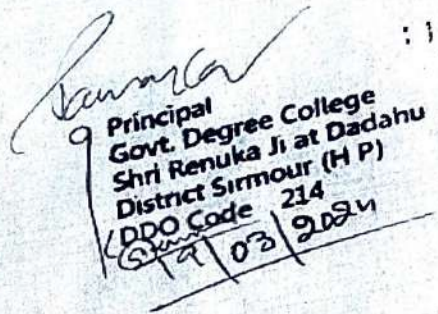 Principal
Govt. Degree College
Shri Renuka Ji at Dadahu
District Sirmour (H P)
DDO Code 214
9/03/2024